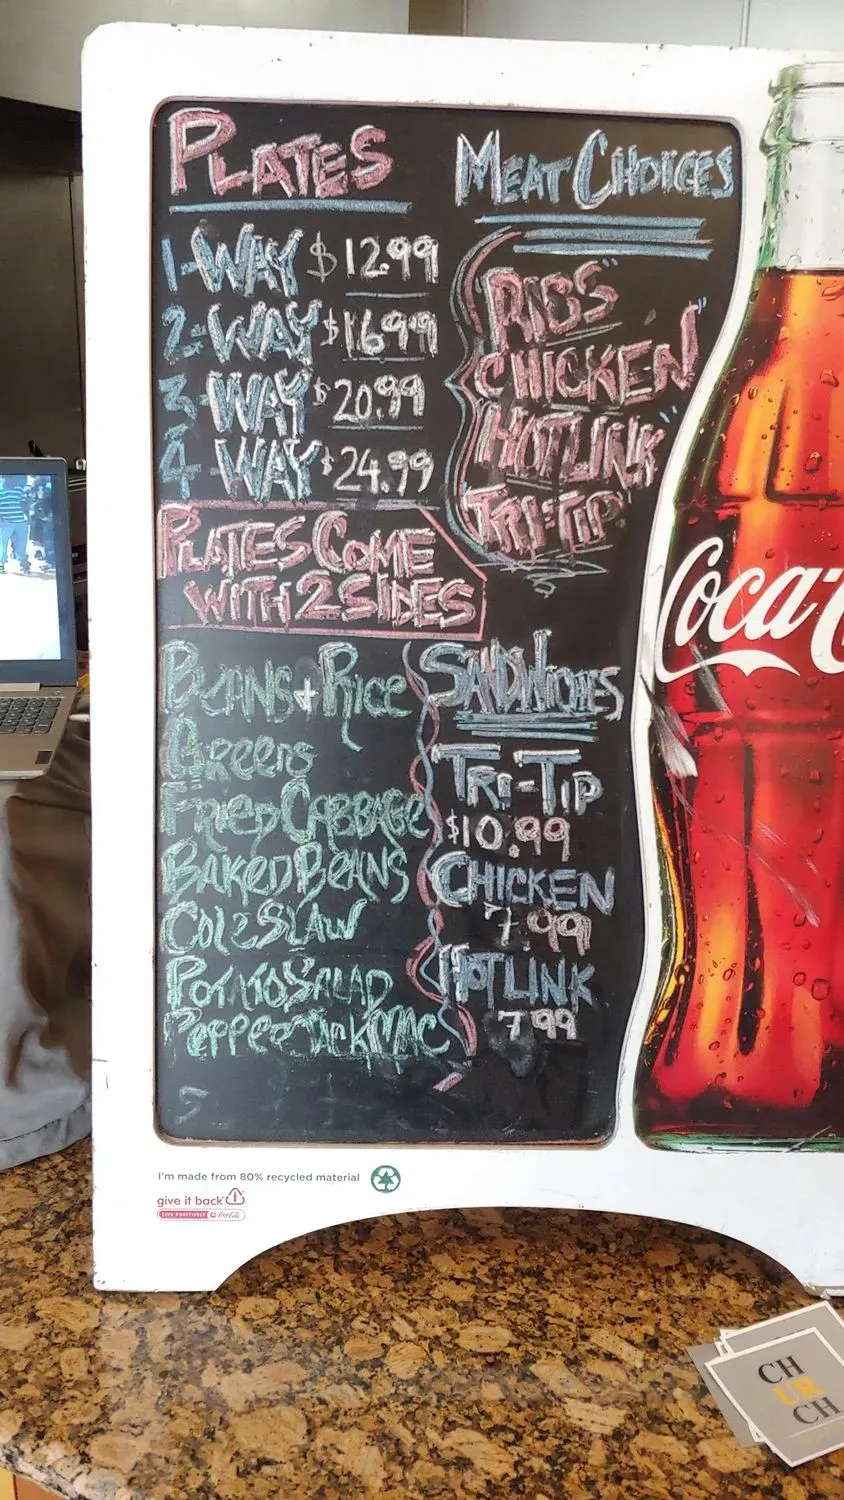 PLATES
1-WAY $12.99
2-WAY $16.99
3-WAY $20.99
4-WAY $24.99
MEAT CHOICES
"RIBS"
CHICKEN"
"HOTLINK"
TRI-TIP
PLATES COME
WITH 2 SIDES
BEANS + RICE
GREENS
FRIED CABBAGE
BAKED BEANS
COLESLAW
POTATO SALAD
PEPPERJACK MAC
SANDWICHES
TRI-TIP
$10.99
CHICKEN
7.99
HOTLINK
7.99
Coca-C
I'm made from 80% recycled material
give it back
LIVE POSITIVELY Coca-Cola
CH
UR
CH